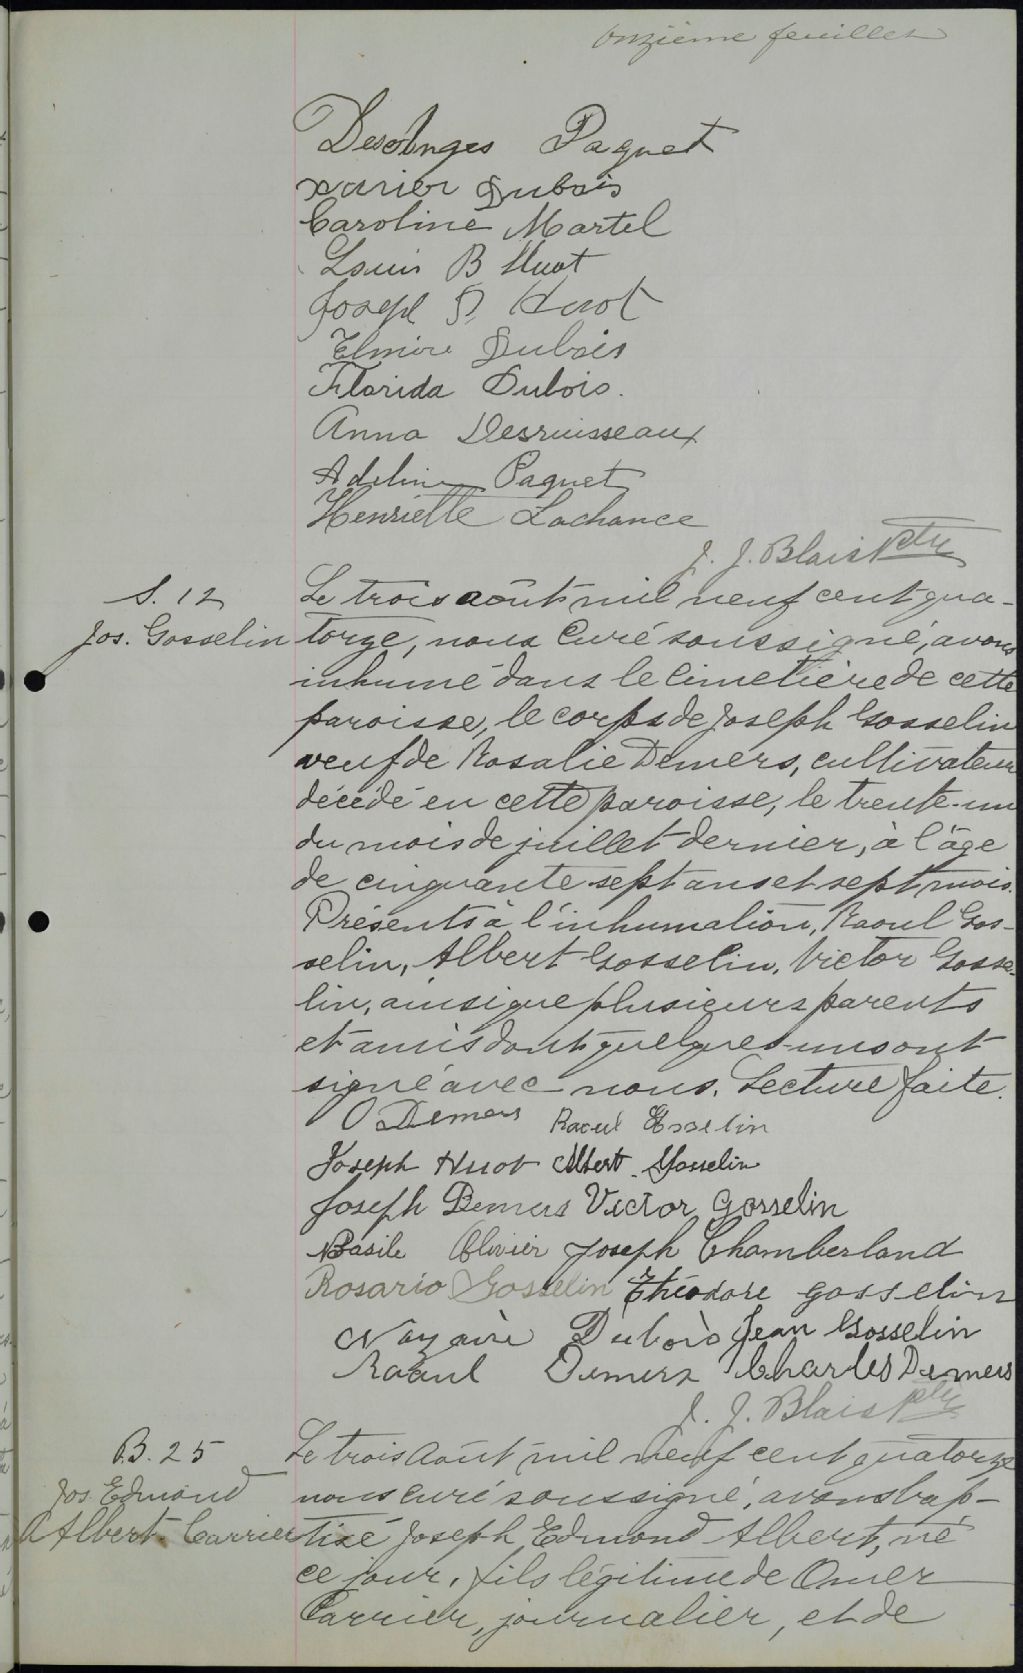 onzième feuillet
Desolnges Paquet
Xavier Dubois
Caroline Martel
Louis B Huot
Joseph D. Huot
Elmire Dubois
Florida Dubois.
Anna Desruisseaux
Adeline Paquet
Henriette Lachance
J. J. Blais Ptre
S. 12
Jos. Gosselin
Le trois août mil neuf cent qua-
torze, nous Curé soussigné, avons
inhumé dans le cimetière de cette
paroisse, le corps de Joseph Gosselin
veuf de Rosalie Demers, cultivateur
décédé en cette paroisse, le trente-un
du mois de juillet dernier, à l'âge
de cinquante-sept ans et sept mois.
Présents à l'inhumation, Raoul Gos-
selin, Albert Gosselin, Victor Gosse-
lin, ainsi que plusieurs parents
et amis dont quelques-uns ont
signé avec nous. Lecture faite.
O Demers Raoul Gosselin
Joseph Huot Albert Gosselin
Joseph Demers Victor Gosselin
Basile Olivier Joseph Chamberland
Rosario Gosselin Théodore Gosselin
Nazaire Dubois Jean Gosselin
Raoul Demers Charles Demers
J. J. Blais ptre
B. 25
Jos. Edmond
Albert Carrier
Le trois Août mil neuf cent quatorze
nous curé soussigné, avons bap-
tisé Joseph Edmond Albert, né
ce jour, fils légitime de Omer
Carrier, journalier, et de